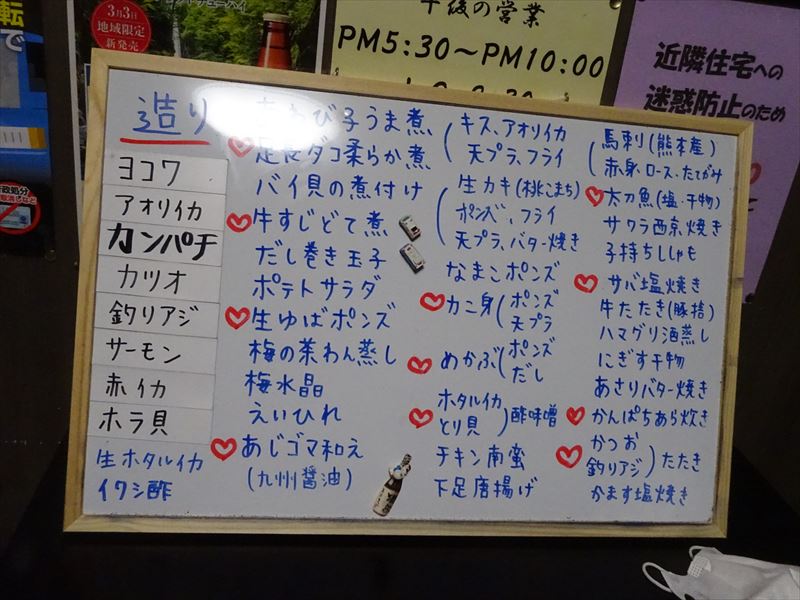 3月3日
地域限定
新発売
午後の営業
PM5:30〜PM10:00
近隣住宅への
迷惑防止のため
造り
ヨコワ
アオリイカ
カンパチ
カツオ
釣りアジ
サーモン
赤イカ
ホラ貝
生ホタルイカ
イワシ酢
び子うま煮
足長ダコ柔らか煮
バイ貝の煮付け
牛すじどて煮
だし巻き玉子
ポテトサラダ
生ゆばポンズ
梅の茶わん蒸し
梅水晶
えいひれ
あじゴマ和え
(九州醤油)
キス、アオリイカ
天プラ、フライ
生カキ(桃こまち)
ポンズ、フライ
天プラ、バター焼き
なまこポンズ
カニ身(ポンズ
天プラ
めかぶ(ポンズ
だし
ホタルイカ
とり貝)酢味噌
チキン南蛮
下足唐揚げ
馬刺(熊本産)
赤身・ロース・たてがみ
太刀魚(塩・干物)
サワラ西京焼き
子持ちししゃも
サバ塩焼き
牛たたき(豚捨)
ハマグリ酒蒸し
にぎす干物
あさりバター焼き
かんぱちあら炊き
かつお
釣りアジ)たたき
かます塩焼き